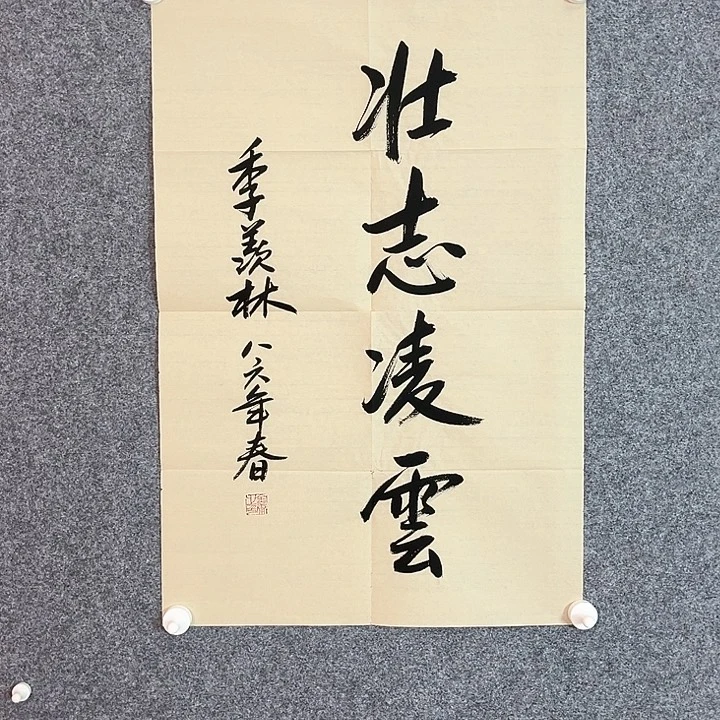 壮志凌雲
季羨林 八六年春